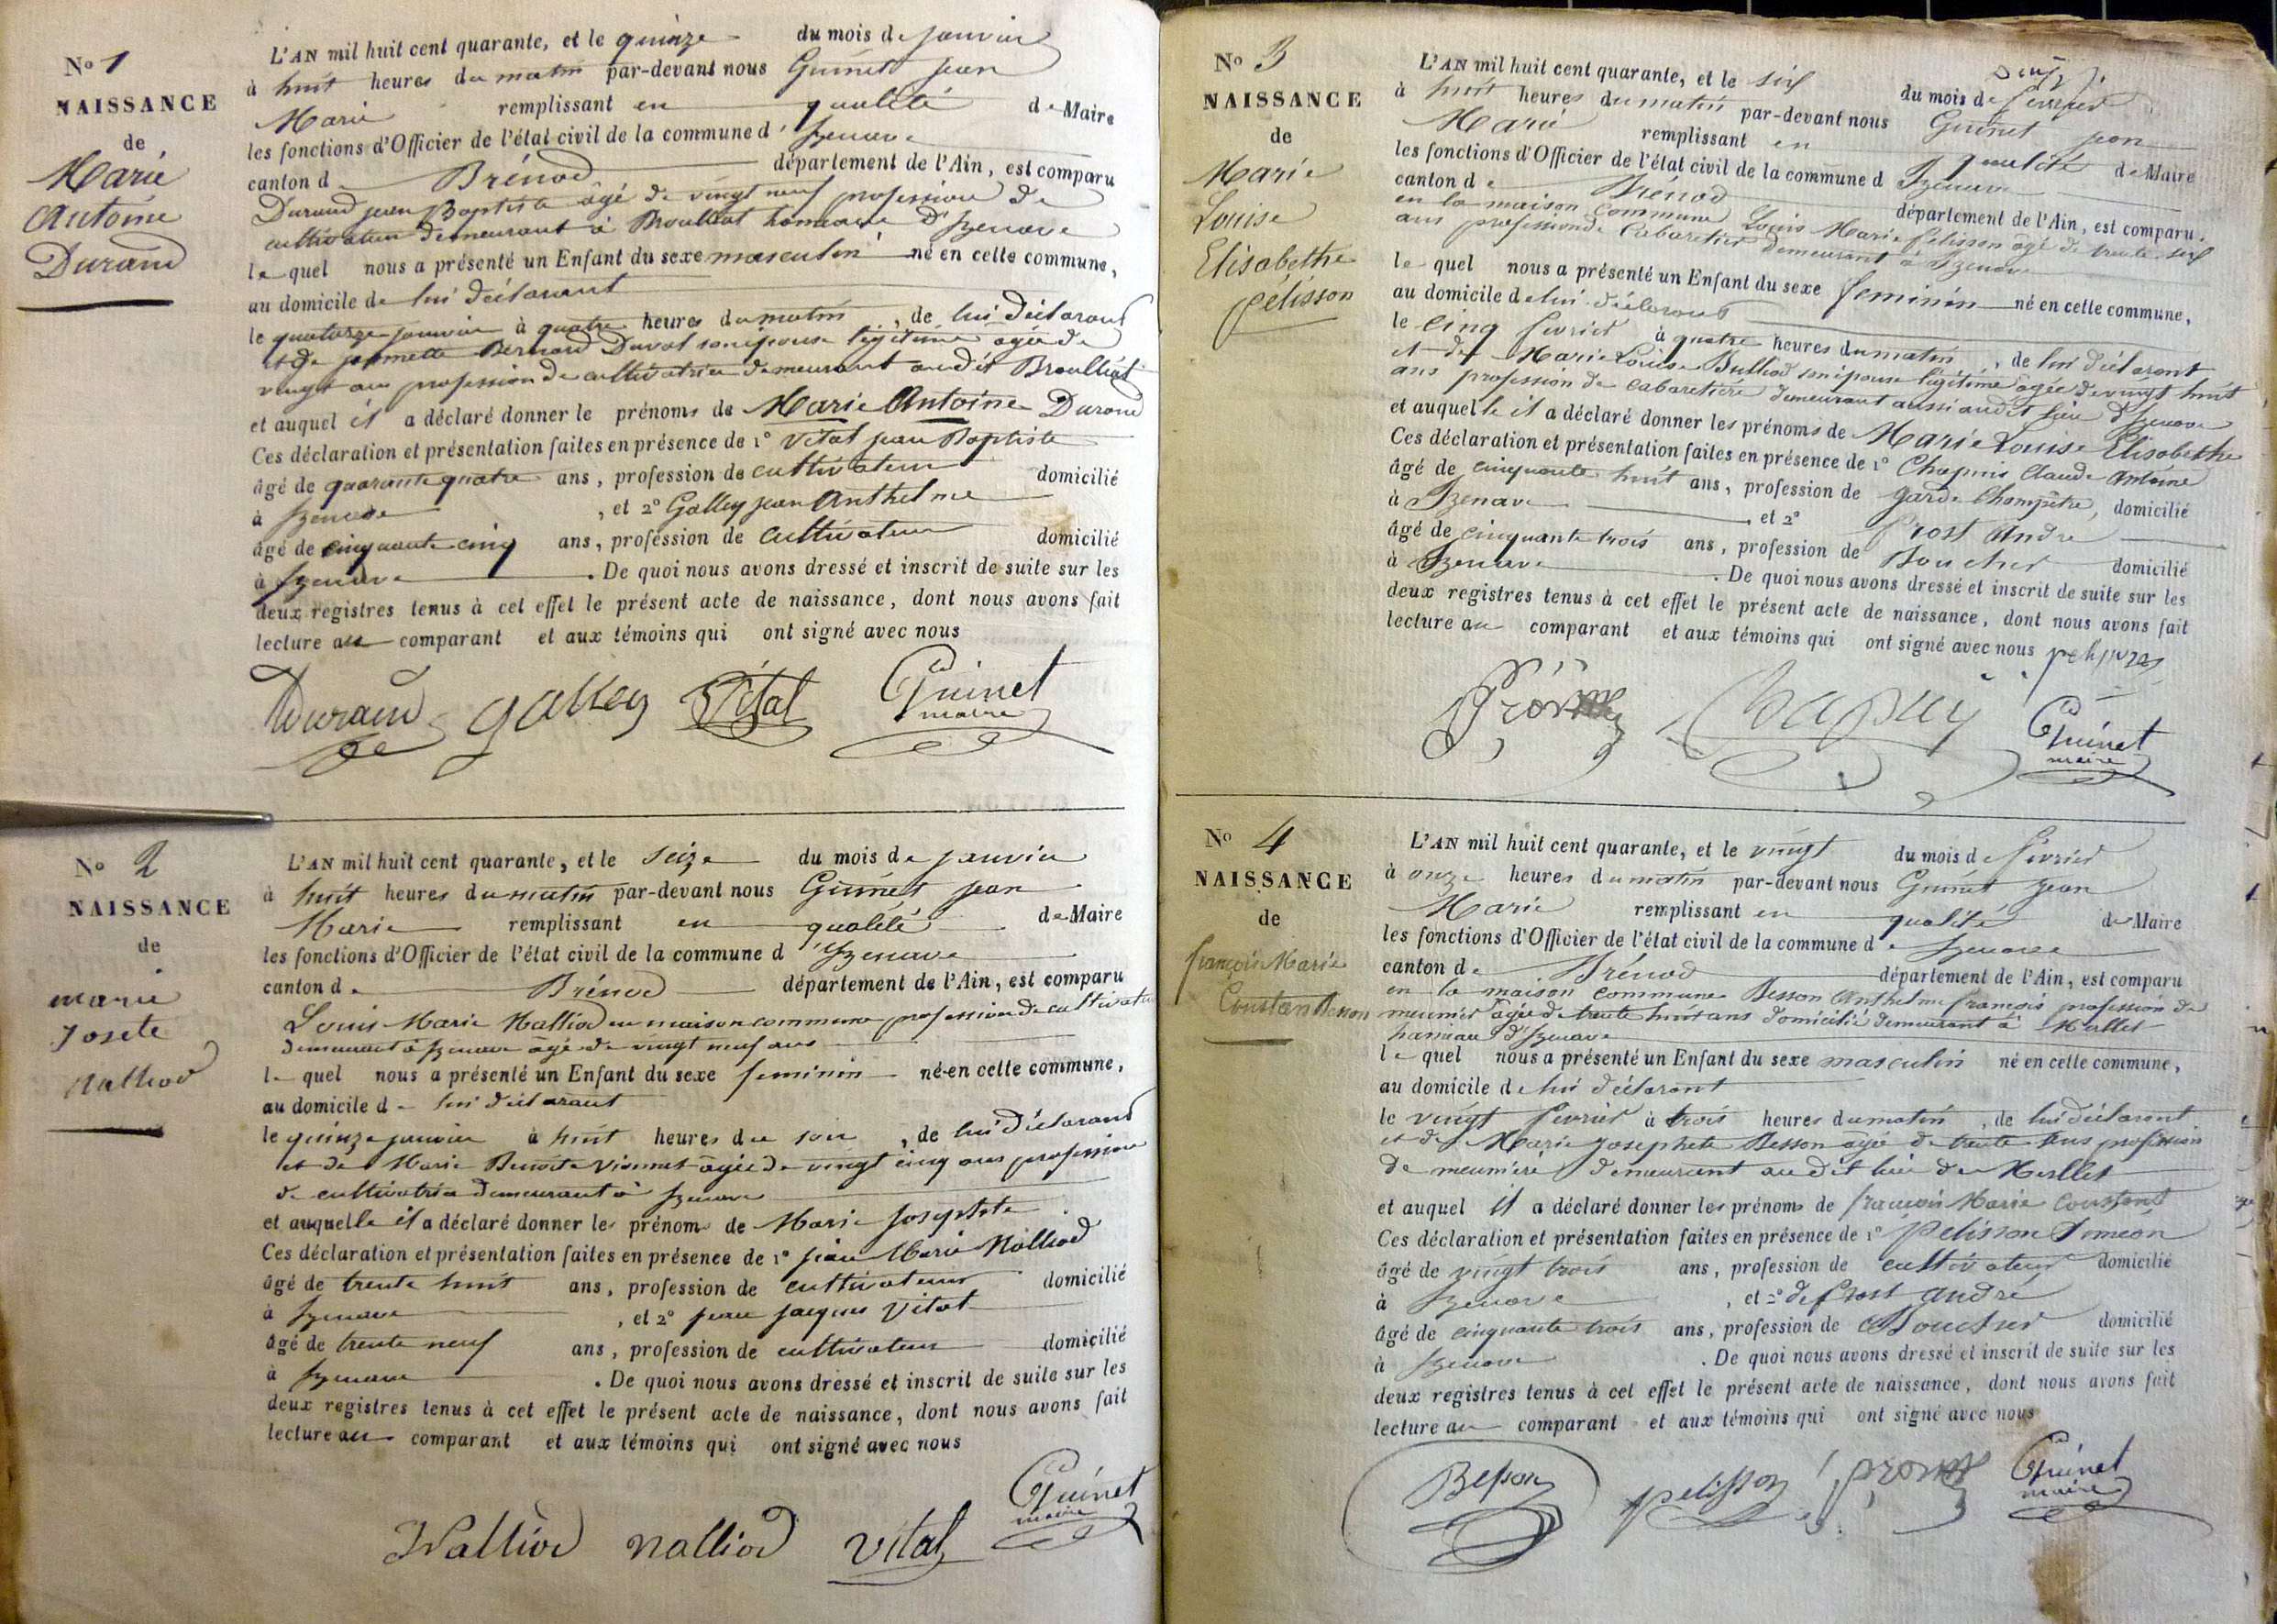 No 1
NAISSANCE
de
Marie
Antoine
Durand
L'AN mil huit cent quarante, et le quinze du mois de janvier
à huit heures du matin par-devant nous Guinet jean
Marie remplissant en qualité de Maire
les fonctions d'Officier de l'état civil de la commune d'Izenave
canton de Brénod département de l'Ain, est comparu
Durand jean Baptiste âgé de vingt neuf profession de
cultivateur demeurant à Broulliat hameau d'Izenave
lequel nous a présenté un Enfant du sexe masculin né en cette commune,
au domicile de lui déclarant
le quatorze janvier à quatre heures du matin, de lui déclarant
et de Bernard Duval son épouse légitime âgée de
vingt ans profession de cultivatrice demeurant audit Broulliat
et auquel il a déclaré donner le prénoms de Marie Antoine Durand
Ces déclaration et présentation faites en présence de 1o Vital jean Baptiste
âgé de quarante quatre ans, profession de cultivateur domicilié
à Izenave, et 2o Galley jean Anthelme
âgé de cinquante cinq ans, profession de cultivateur domicilié
à Izenave. De quoi nous avons dressé et inscrit de suite sur les
deux registres tenus à cet effet le présent acte de naissance, dont nous avons fait
lecture au comparant et aux témoins qui ont signé avec nous
Durand galley Vital Guinet
maire
No 2
NAISSANCE
de
marie
Josete
Nalliod
L'AN mil huit cent quarante, et le seize du mois de janvier
à huit heures du matin par-devant nous Guinet jean
Marie remplissant en qualité de Maire
les fonctions d'Officier de l'état civil de la commune d'Izenave
canton de Brénod département de l'Ain, est comparu
Louis Marie Nalliod en maison commune profession de cultivateur
demeurant à Izenave âgé de vingt neuf ans
lequel nous a présenté un Enfant du sexe feminin né en cette commune,
au domicile de lui déclarant
le quinze janvier à huit heures du soir, de lui déclarant
et de Marie Benoite Vionnet âgée de vingt cinq ans profession
de cultivatrice demeurant à Izenave
et auquelle il a déclaré donner les prénoms de Marie Josephte
Ces déclaration et présentation faites en présence de 1o jean Marie Nalliod
âgé de trente huit ans, profession de cultivateur domicilié
à Izenave, et 2o jean jacques Vital
âgé de trente neuf ans, profession de cultivateur domicilié
à Izenave. De quoi nous avons dressé et inscrit de suite sur les
deux registres tenus à cet effet le présent acte de naissance, dont nous avons fait
lecture au comparant et aux témoins qui ont signé avec nous
Nalliod nalliod vital Guinet
maire
No 3
NAISSANCE
de
Marie
Louise
Elisabethe
pélisson
L'AN mil huit cent quarante, et le six du mois de fevrier
à huit heures du matin par-devant nous Guinet jean
Marie remplissant en qualité de Maire
les fonctions d'Officier de l'état civil de la commune d'Izenave
canton de Brénod département de l'Ain, est comparu
en la maison commune Louis Marie Pelisson âgé de trente six
ans profession de Cabaretier demeurant à Izenave
lequel nous a présenté un Enfant du sexe feminin né en cette commune,
au domicile de lui déclarant
le cinq fevrier à quatre heures du matin, de lui déclarant
et de Marie Louise Bulliod son épouse légitime âgée de vingt huit
ans profession de cabaretière demeurant aussi audit lieu d'Izenave
et auquelle il a déclaré donner les prénoms de Marie Louise Elisabethe
Ces déclaration et présentation faites en présence de 1o Chapuis Claude Antoine
âgé de cinquante huit ans, profession de garde Champêtre, domicilié
à Izenave, et 2o Prost André
âgé de cinquante trois ans, profession de Boucher domicilié
à Izenave. De quoi nous avons dressé et inscrit de suite sur les
deux registres tenus à cet effet le présent acte de naissance, dont nous avons fait
lecture au comparant et aux témoins qui ont signé avec nous
Chapuy Guinet
maire
No 4
NAISSANCE
de
françois Marie
Constan Besson
L'AN mil huit cent quarante, et le vingt du mois de fevrier
à onze heures du matin par-devant nous Guinet jean
Marie remplissant en qualité de Maire
les fonctions d'Officier de l'état civil de la commune d'Izenave
canton de Brénod département de l'Ain, est comparu
en la maison commune Besson Anthelme françois profession de
meunier âgé de trente huit ans domicilié demeurant à Merllet
hameau d'Izenave
lequel nous a présenté un Enfant du sexe masculin né en cette commune,
au domicile de lui déclarant
le vingt fevrier à trois heures du matin, de lui déclarant
et de Marie josephete Besson âgée de trente ans profession
de meunière demeurant au dit lieu de Merllet
et auquel il a déclaré donner les prénoms de françois Marie Constant
Ces déclaration et présentation faites en présence de 1o Pelisson Simeon
âgé de vingt trois ans, profession de cultivateur domicilié
à Izenave, et 2o de Prost andré
âgé de cinquante trois ans, profession de Boucher domicilié
à Izenave. De quoi nous avons dressé et inscrit de suite sur les
deux registres tenus à cet effet le présent acte de naissance, dont nous avons fait
lecture au comparant et aux témoins qui ont signé avec nous
Besson pelisson Guinet
maire